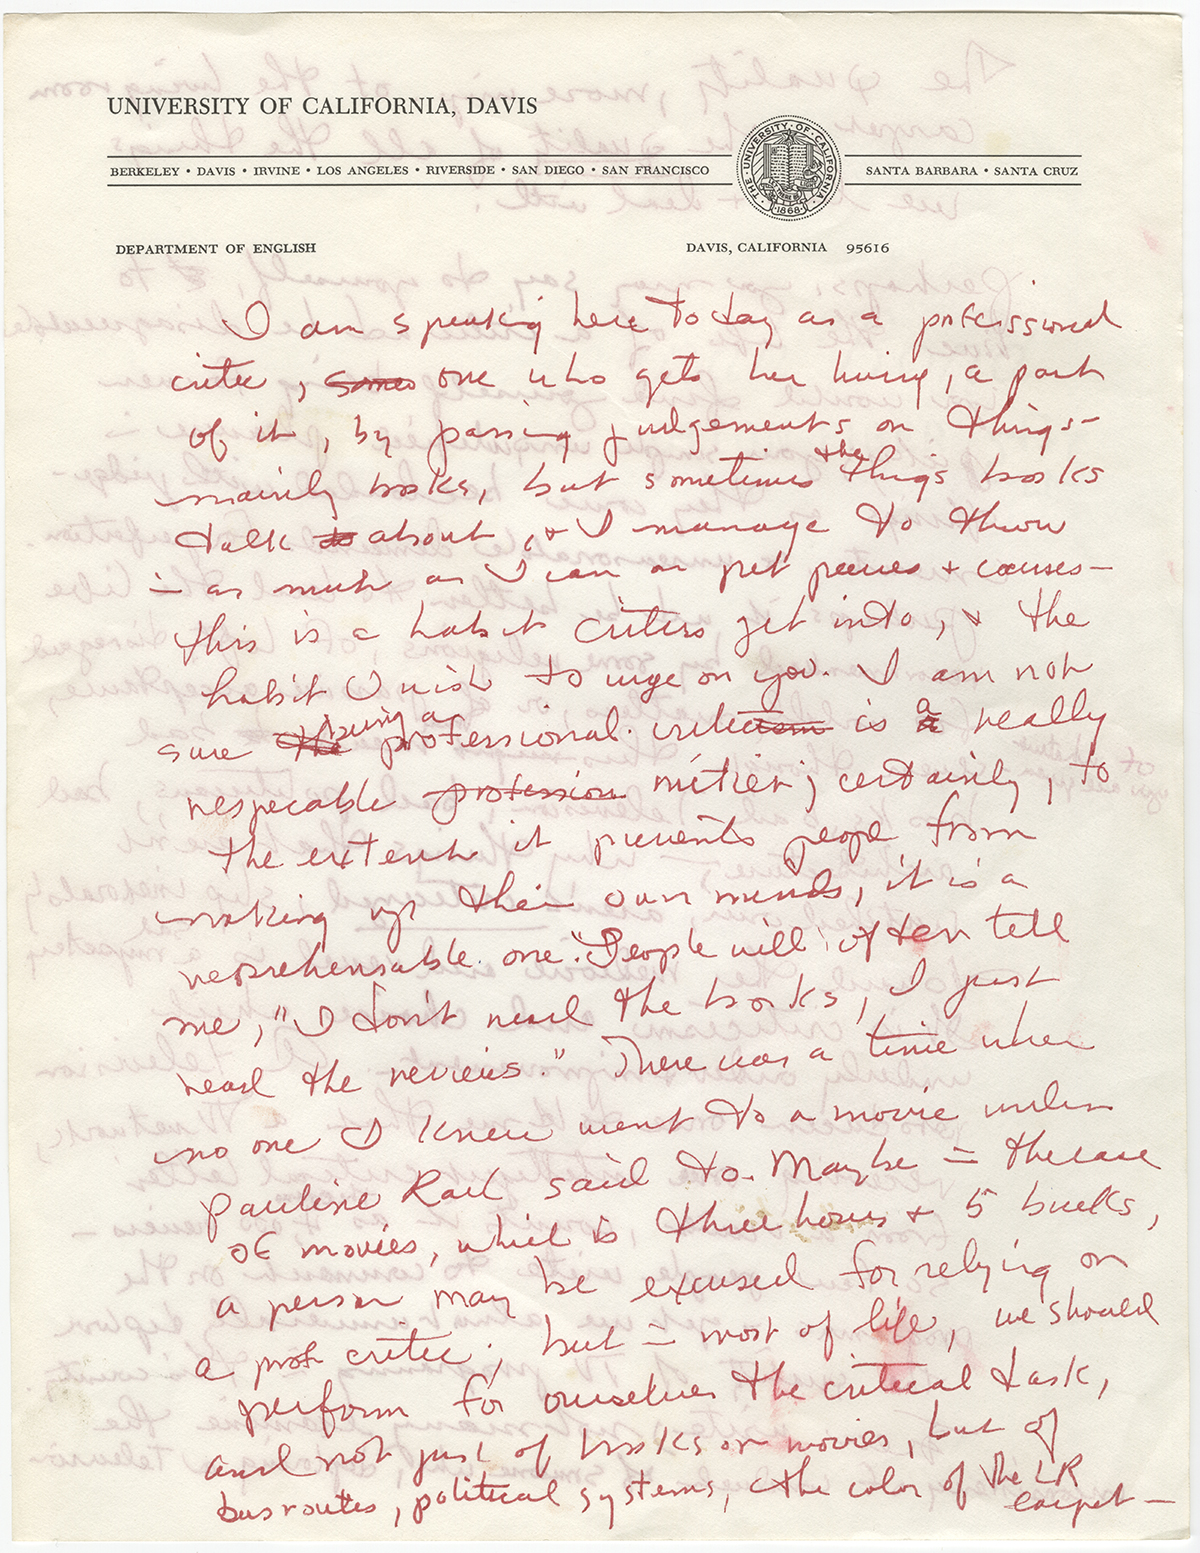 UNIVERSITY OF CALIFORNIA, DAVIS
BERKELEY • DAVIS • IRVINE • LOS ANGELES • RIVERSIDE • SAN DIEGO • SAN FRANCISCO
THE UNIVERSITY OF CALIFORNIA 1868
SANTA BARBARA • SANTA CRUZ
DEPARTMENT OF ENGLISH
DAVIS, CALIFORNIA 95616
I am speaking here today as a professional
critic, some one who gets her living, a part
of it, by passing judgements on things –
mainly books, but sometimes the things books
talk to about, & I manage to throw
in as much as I can on pet peeves & causes –
this is a habit critics get into, & the
habit I wish to urge on you. I am not
sure the being a professional criticism is a really
respecable profession métier; certainly, to
the extent it prevents people from
making up their own minds, it is a
reprehensable one. "People will often tell
me, "I don't read the books, I just
read the reviews." There was a time when
no one I knew went to a movie unless
Pauline Kael said to. Maybe in the case
of movies, which is three hours & 5 bucks,
a person may be excused for relying on
a prof critic; but in most of life, we should
perform for ourselves the critical task,
and not just of books or movies, but of
bus routes, political systems, the color of the LR
carpet –